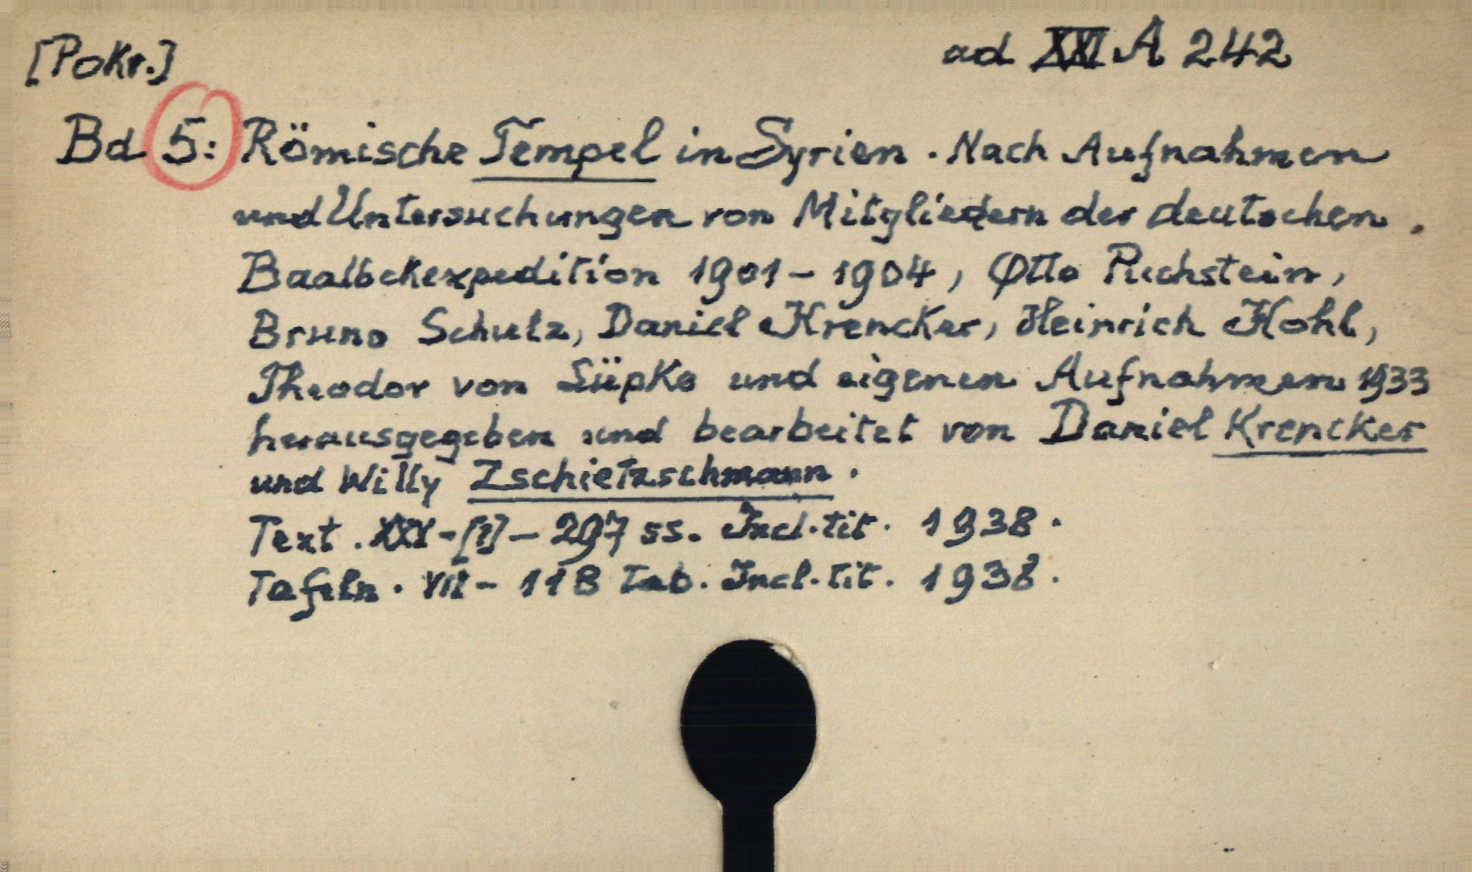 [Pokr.]
ad XXI A 242
Bd 5: Römische Tempel in Syrien. Nach Aufnahmen
und Untersuchungen von Mitgliedern der deutschen
Baalbekexpedition 1901-1904, Otto Puchstein,
Bruno Schulz, Daniel Krencker, Heinrich Kohl,
Theodor von Lüpke und eigenen Aufnahmen 1933
herausgegeben und bearbeitet von Daniel Krencker
und Willy Zschietzschmann.
Text. -[1]-297 ss. Incl. tit. 1938.
Tafeln. VII-118 Tab. Incl. tit. 1938.